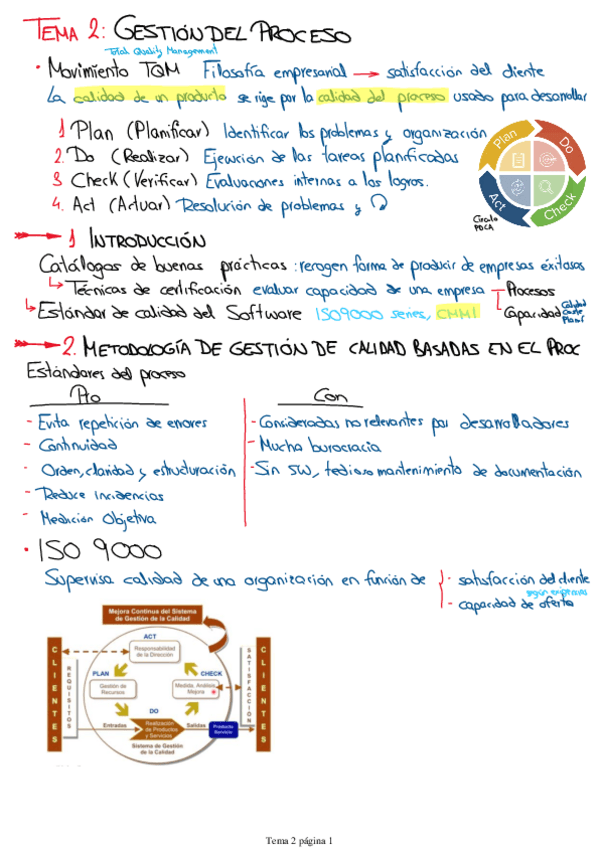 TEMA 2: GESTIÓN DEL PROCESO
Total Quality Management
· Movimiento TQM Filosofía empresarial → satisfacción del cliente
La calidad de un producto se rige por la calidad del proceso usado para desarrollar
1 Plan (Planificar) Identificar los problemas y organización
2. Do (Realizar) Ejecución de las tareas planificadas
3 Check (Verificar) Evaluaciones internas a los logros.
4. Act (Actuar) Resolución de problemas y
Plan
Do
Check
Act
Círculo
PDCA
1 INTRODUCCIÓN
Catálogos de buenas prácticas: recogen forma de producir de empresas éxitosas
Técnicas de certificación evaluar capacidad de una empresa
Procesos
Capacidad
Calidad
Coste
Planif
Estándar de calidad del Software ISO9000 series, CMMI
2. METODOLOGÍA DE GESTIÓN DE CALIDAD BASADAS EN EL PROC
Estándares del proceso
Pro
- Evita repetición de errores
- Continuidad
- Orden, claridad y estructuración
- Reduce incidencias
- Medición Objetiva
Con
- Consideradas no relevantes por desarrolladores
- Mucha burocracia
- Sin SW, tedioso mantenimiento de documentación
· ISO 9000
Supervisa calidad de una organización en función de
- satisfacción del cliente
- capacidad de oferta
Mejora Continua del Sistema
de Gestión de la Calidad
ACT
Responsabilidad
de la Dirección
PLAN
Gestión de
Recursos
CHECK
Medida, Análisis,
Mejora
DO
Entradas
Realización
de Productos
y Servicios
Salidas
Producto
Servicio
Sistema de Gestión
de la Calidad
CLIENTES
REQUISITOS
SATISFACCIÓN
CLIENTES
Tema 2 página 1